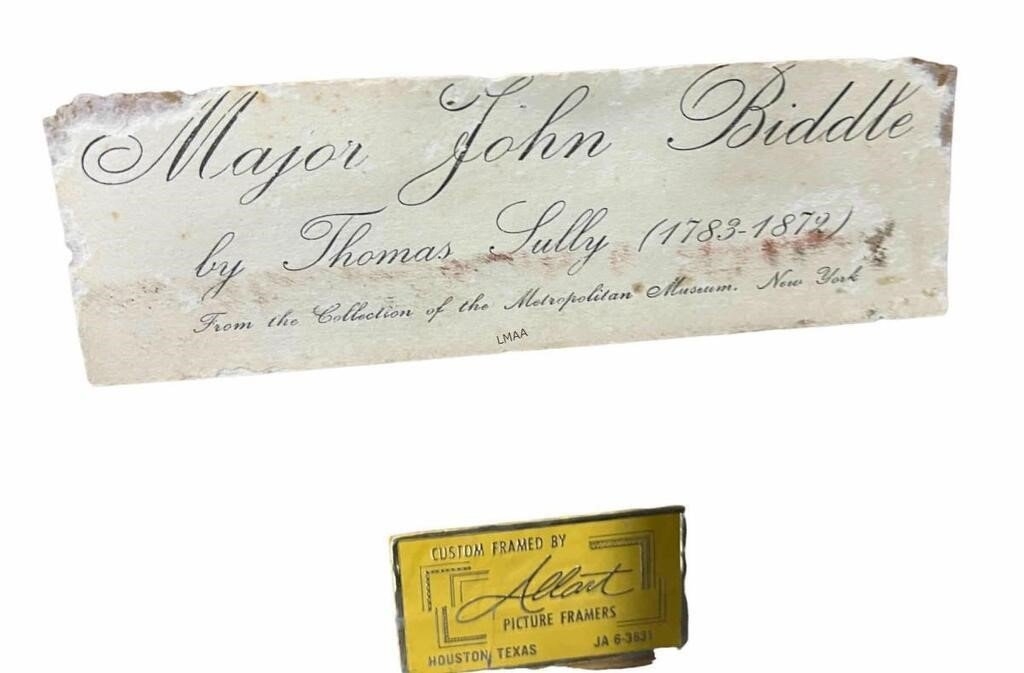 Major John Biddle
by Thomas Sully (1783-1872)
From the Collection of the Metropolitan Museum. New York
LMAA
CUSTOM FRAMED BY
Allart
PICTURE FRAMERS
HOUSTON, TEXAS JA 6-3631